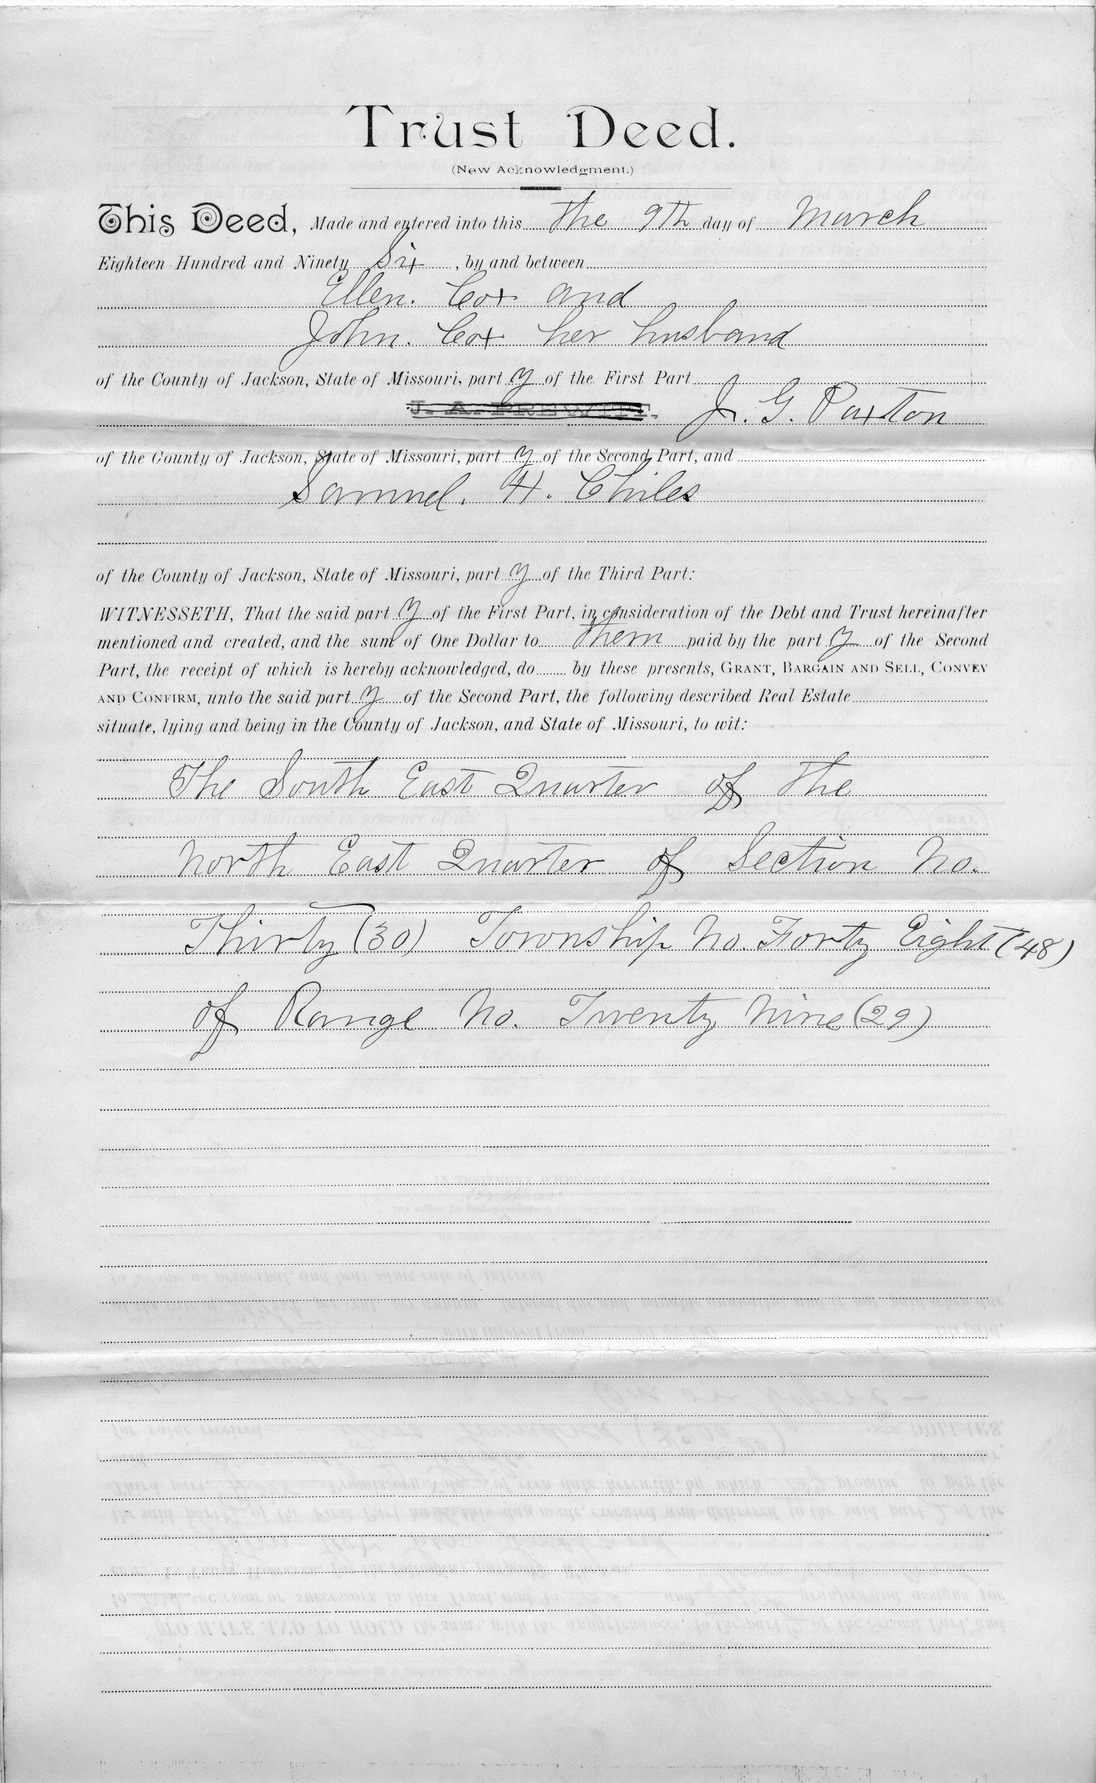 Trust Deed.
(New Acknowledgment.)
This Deed, Made and entered into this the 9th day of March
Eighteen Hundred and Ninety Six, by and between
Ellen. Cox and
John. Cox her husband
of the County of Jackson, State of Missouri, part y of the First Part
J. A. PREWITT. J. G. Paxton
of the County of Jackson, State of Missouri, part y of the Second Part, and
Samuel. H. Chiles
of the County of Jackson, State of Missouri, part y of the Third Part:
WITNESSETH, That the said part y of the First Part, in consideration of the Debt and Trust hereinafter
mentioned and created, and the sum of One Dollar to them paid by the part y of the Second
Part, the receipt of which is hereby acknowledged, do by these presents, GRANT, BARGAIN AND SELL, CONVEY
AND CONFIRM, unto the said part y of the Second Part, the following described Real Estate
situate, lying and being in the County of Jackson, and State of Missouri, to wit:
The South East Quarter of the
North East Quarter of Section No.
Thirty (30) Township No. Forty Eight (48)
of Range No. Twenty Nine (29)